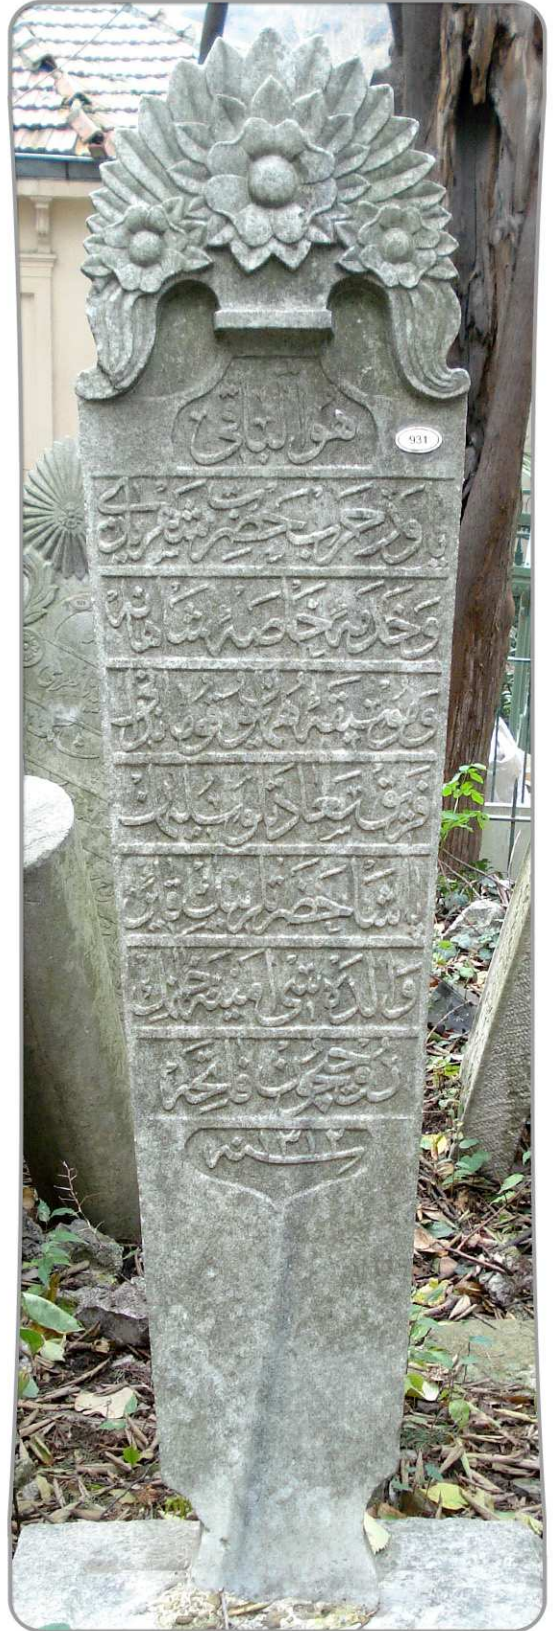 هو الباقی
931
یاور حرب حضرت شهریاری
و خدمهٔ خاصهٔ شاهانه
و موسیقهٔ همایون قوماندانی
فریق سعادتلو سلیمان
پاشا حضرتلرینك قاین
والده سی امینه خانمك
روحیچون فاتحه
سنه ١٣١٢